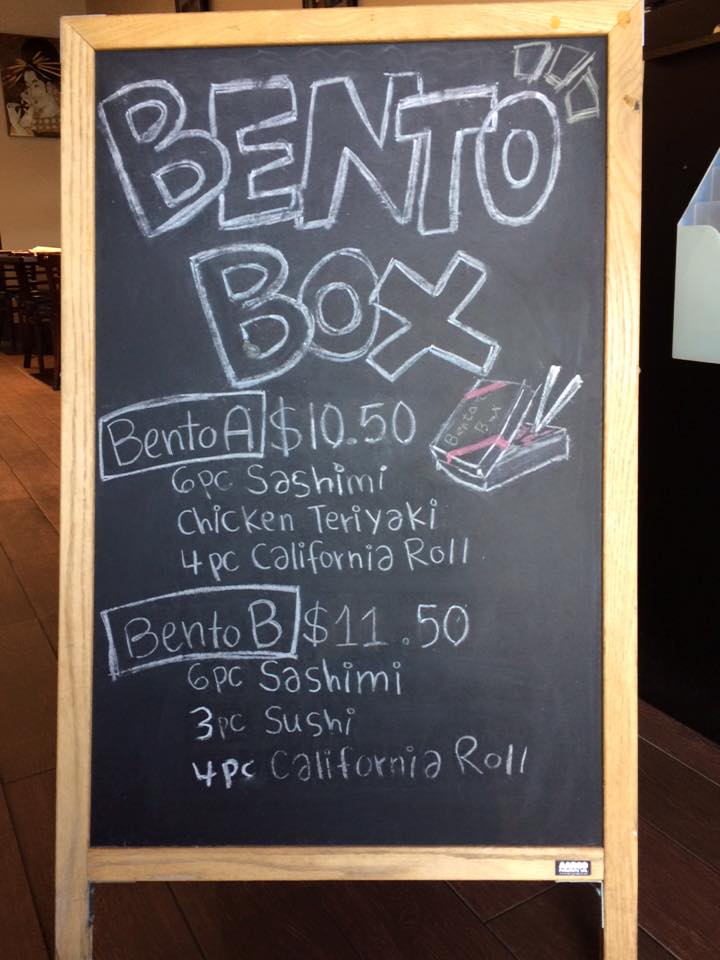 BENTO
BOX
Bento A $10.50
6pc Sashimi
Chicken Teriyaki
4pc California Roll
Bento Box
Bento B $11.50
6pc Sashimi
3pc Sushi
4pc California Roll